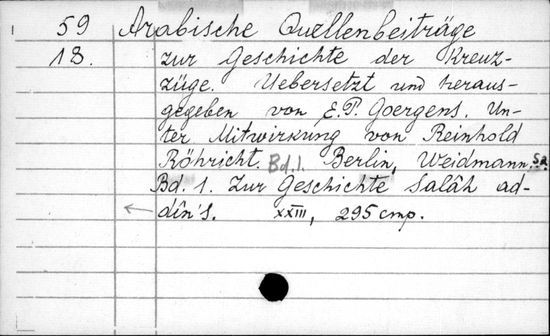 59 Arabische Quellenbeiträge
18. zur Geschichte der Kreuz-
züge. Uebersetzt und heraus-
gegeben von E.P. Goergens. Un-
ter Mitwirkung von Reinhold
Röhricht. Bd.1. Berlin, Weidmann, s.a.
Bd. 1. Zur Geschichte Salâh ad-
dîn's. XXIII, 295 стр.